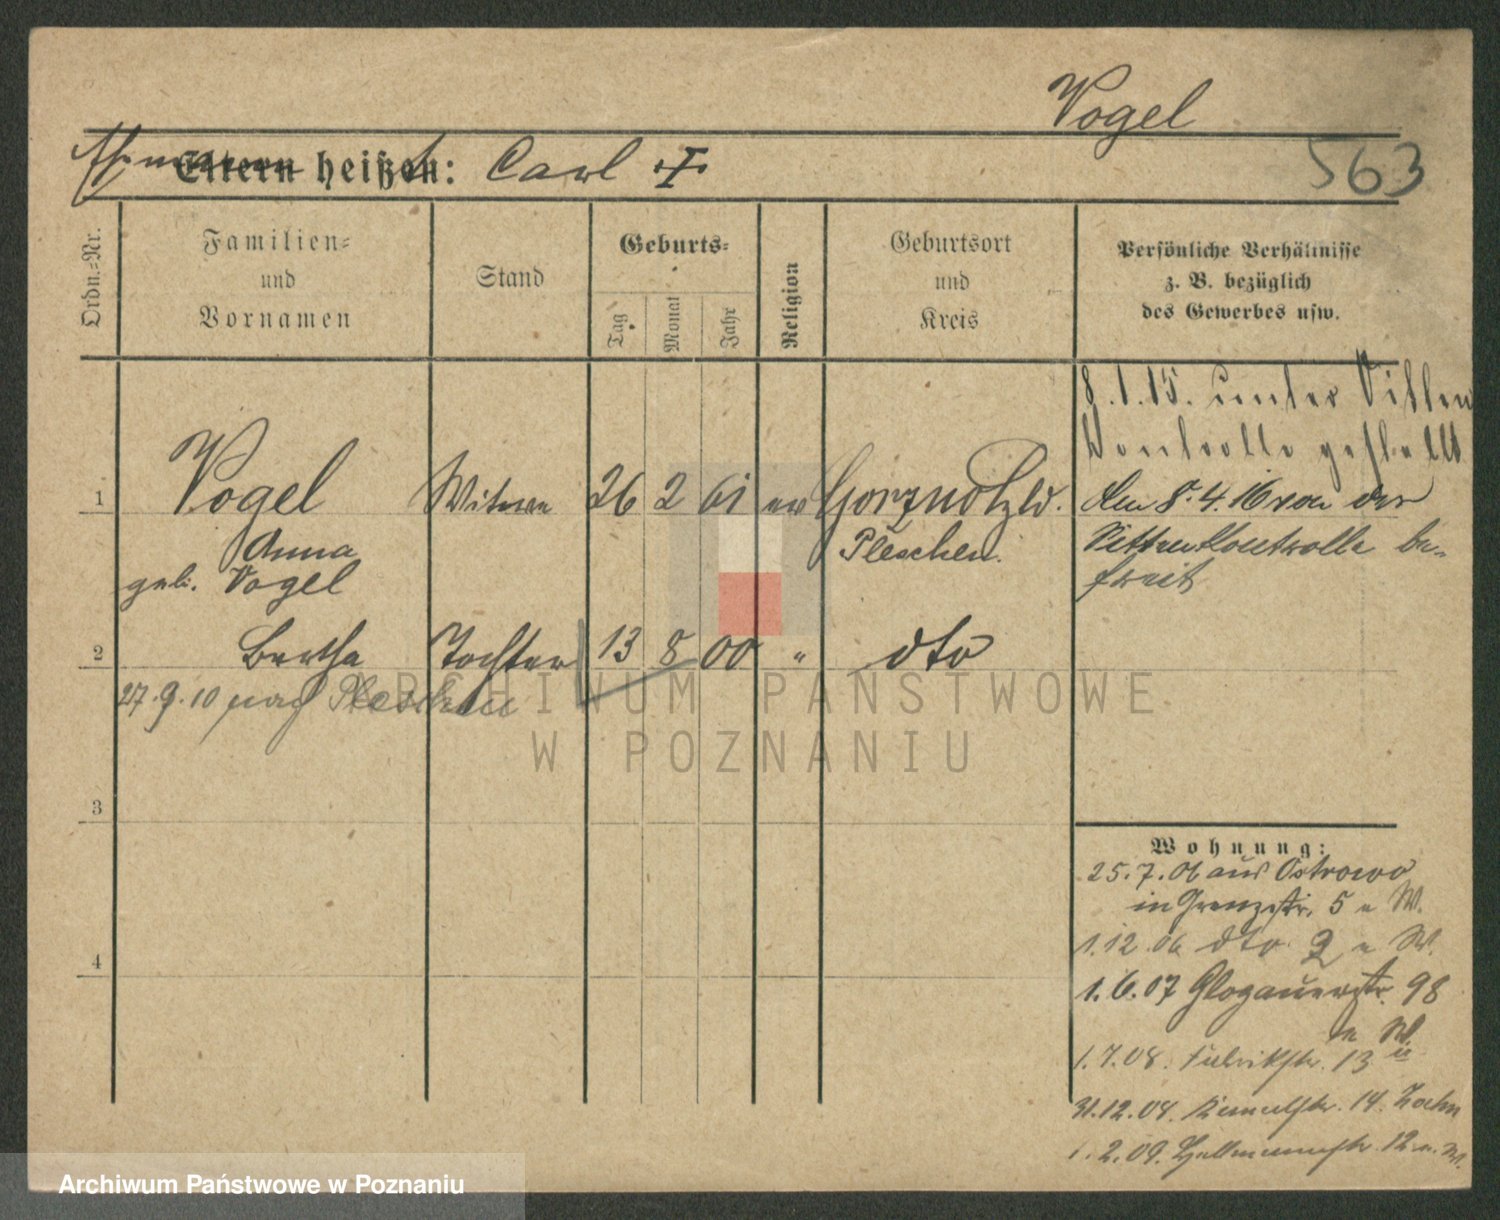 Vogel
Ehemann Eltern heißen: Carl †
563
Ordn.=Nr.
Familien=
und
Vornamen
Stand
Geburts=
Tag
Monat
Jahr
Religion
Geburtsort
und
Kreis
Persönliche Verhältnisse
z. B. bezüglich
des Gewerbes usw.
8.1.15. unter Sitten
Kontrolle gestellt
1 Vogel Witwe 26 2 61 ev
Anna Pleschen.
geb. Vogel
den 8.4.16 von der
Sittenkontrolle be=
freit
2 Bertha Tochter 13 8 00 " dto
27.9.10 nach Pleschen
3
4
Wohnung:
25.7.06 aus Ostrowo
in Grenzstr. 5 e W.
1.12.06 dto 2 e W.
1.6.07 Glogauerstr. 98
e W.
1.7.08. Fabrikstr. 13
31.12.08. 14.
1.2.09. 12 e. W.
ARCHIWUM PAŃSTWOWE
W POZNANIU
Archiwum Państwowe w Poznaniu